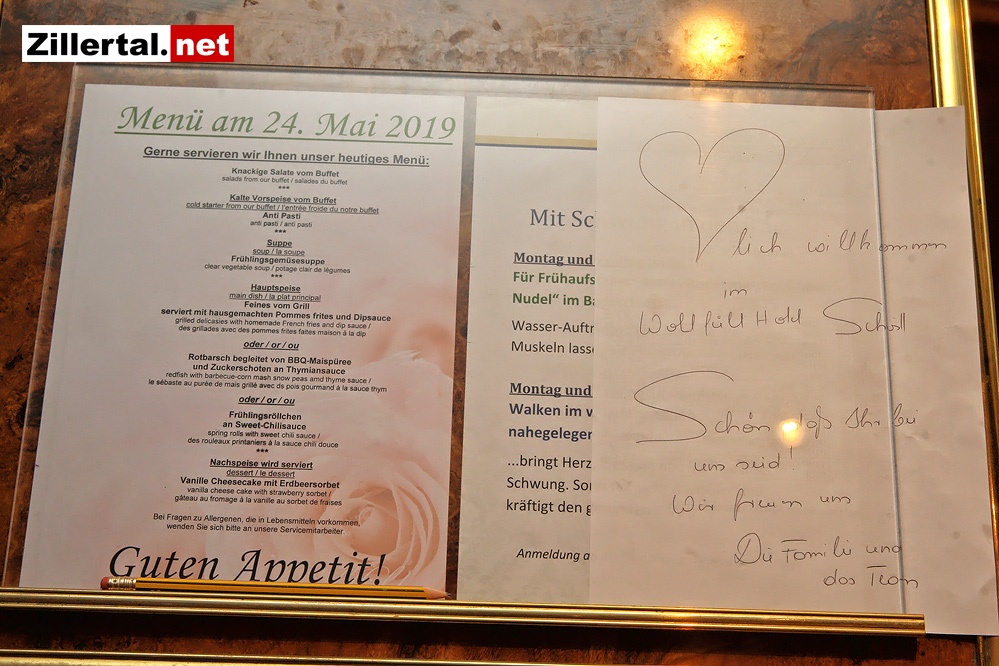 Zillertal.net
Menü am 24. Mai 2019
Gerne servieren wir Ihnen unser heutiges Menü:
Knackige Salate vom Buffet
salads from our buffet / salades du buffet
***
Kalte Vorspeise vom Buffet
cold starter from our buffet / l'entrée froide du notre buffet
Anti Pasti
anti pasti / anti pasti
***
Suppe
soup / la soupe
Frühlingsgemüsesuppe
clear vegetable soup / potage clair de légumes
***
Hauptspeise
main dish / la plat principal
Feines vom Grill
serviert mit hausgemachten Pommes frites und Dipsauce
grilled delicasies with homemade French fries and dip sauce /
des grillades avec des pommes frites faites maison à la dip
oder / or / ou
Rotbarsch begleitet von BBQ-Maispüree
und Zuckerschoten an Thymiansauce
redfish with barbecue-corn mash snow peas amd thyme sauce /
le sébaste au purée de mais grillé avec ds pois gourmand à la sauce thym
oder / or / ou
Frühlingsröllchen
an Sweet-Chilisauce
spring rolls with sweet chili sauce /
des rouleaux printaniers à la sauce chili douce
***
Nachspeise wird serviert
dessert / le dessert
Vanille Cheesecake mit Erdbeersorbet
vanilla cheese cake with strawberry sorbet /
gâteau au fromage à la vanille au sorbet de fraises
Bei Fragen zu Allergenen, die in Lebensmitteln vorkommen,
wenden Sie sich bitte an unsere Servicemitarbeiter.
Guten Appetit!
Mit Sc
Montag und
Für Frühaufs
Nudel“ im Ba
Wasser-Auftr
Muskeln lass
Montag und
Walken im w
nahegelegen
...bringt Herz
Schwung. So
kräftigt den g
Anmeldung a
lich willkommen
im
Wohlfühl Hotel Schrott
Schön daß Ihr bei
uns seid!
Wir freuen uns
Die Familie und
das Team